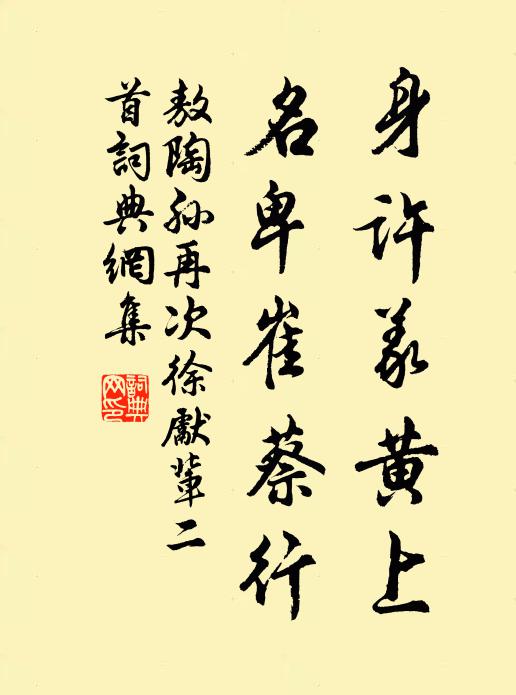 身許羲黄上
名卑崔蔡行
敖陶孫再次徐獻輩二
首詞典網集
詞典網印